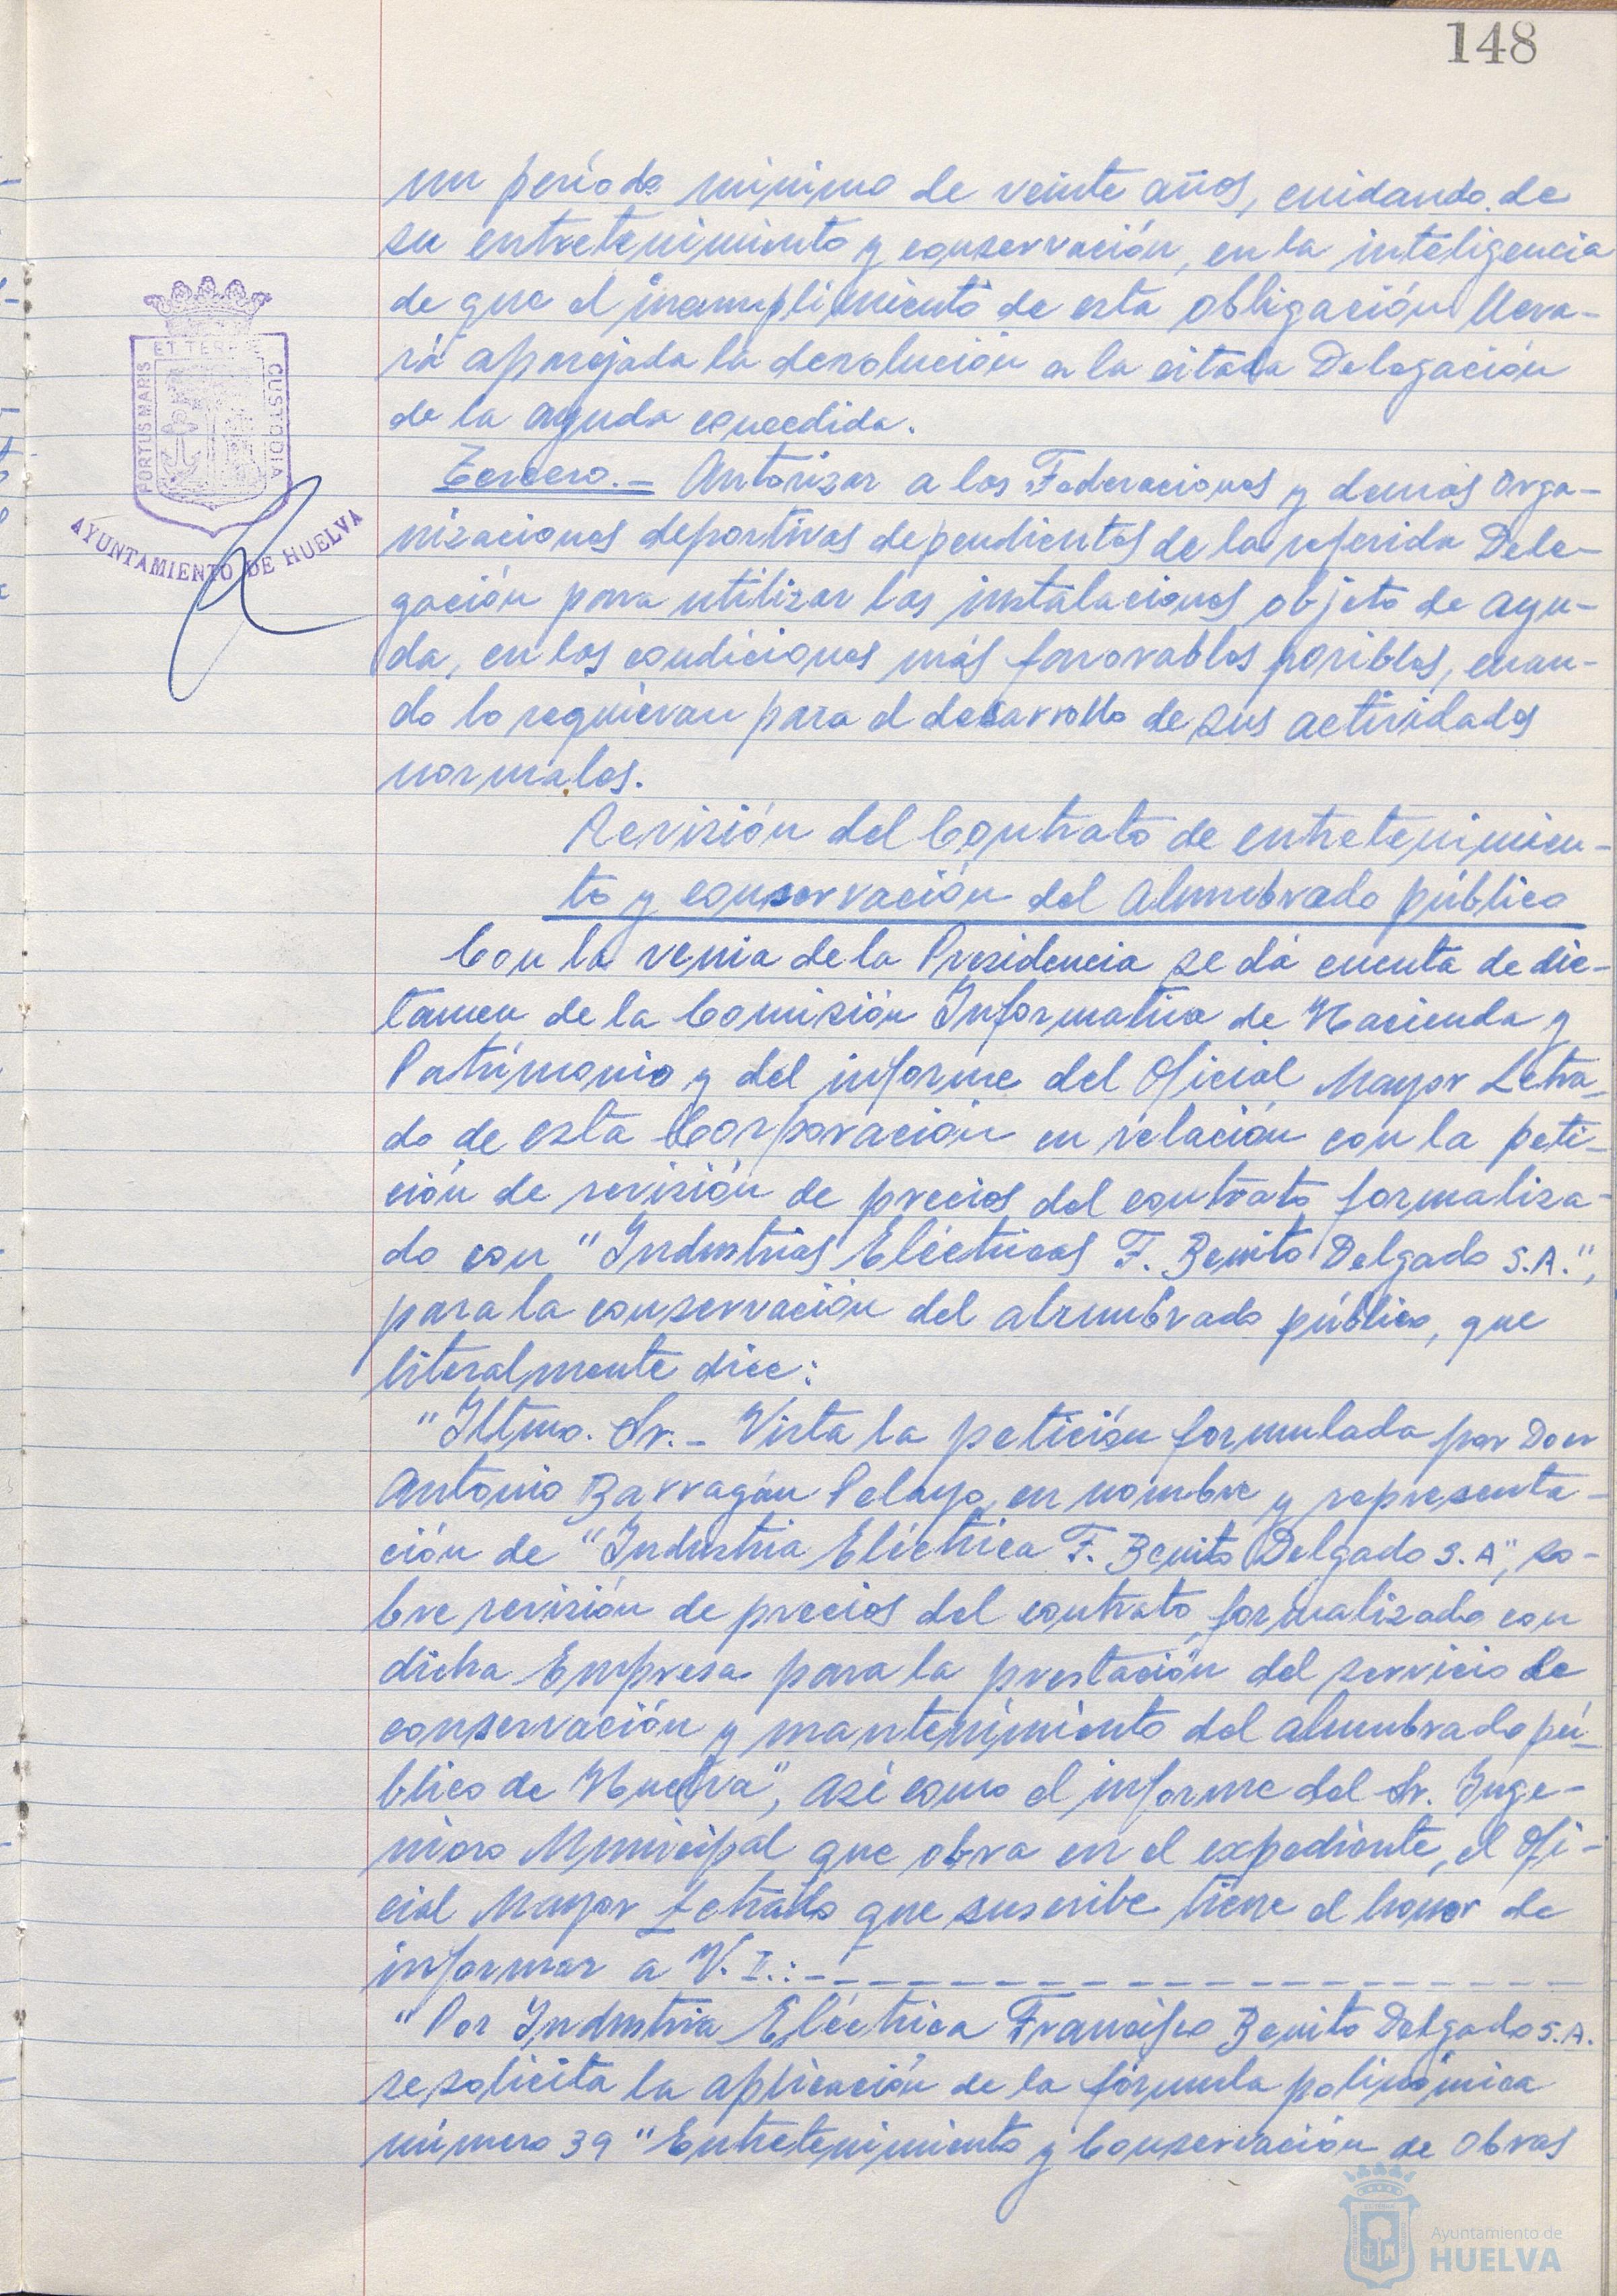 148
un período mínimo de veinte años, cuidando de
su entretenimiento y conservación, en la inteligencia
de que el incumplimiento de esta obligación lleva-
rá aparejada la devolución a la citada Delegación
de la ayuda concedida.
Tercero.- Autorizar a las Federaciones y demás Orga-
nizaciones deportivas dependientes de la referida Dele-
gación para utilizar las instalaciones objeto de ayu-
da, en las condiciones más favorables posibles, cuan-
do lo requieran para el desarrollo de sus actividades
normales.
Revisión del Contrato de entretenimien-
to y conservación del Alumbrado público
Con la venia de la Presidencia se dá cuenta de dic-
tamen de la Comisión Informativa de Hacienda y
Patrimonio y del informe del Oficial Mayor Letra-
do de esta Corporación en relación con la peti-
ción de revisión de precios del contrato formaliza-
do con "Industrias Eléctricas F. Benito Delgado S.A.",
para la conservación del alumbrado público, que
literalmente dice:
"Iltmo. Sr.- Vista la petición formulada por Don
Antonio Barragán Pelayo, en nombre y representa-
ción de "Industria Eléctrica F. Benito Delgado S.A", so-
bre revisión de precios del contrato formalizado con
dicha Empresa para la prestación del servicio de
conservación y mantenimiento del alumbrado pú-
blico de Huelva", así como el informe del Sr. Inge-
niero Municipal que obra en el expediente, el Ofi-
cial Mayor Letrado que suscribe tiene el honor de
informar a V.I.:-
"Por Industria Eléctrica Francisco Benito Delgado S.A.
se solicita la aplicación de la fórmula polinómica
número 39 "Entretenimiento y Conservación de Obras
ET TERRE
PORTUS MARIS
CUSTODIA
AYUNTAMIENTO DE HUELVA
Ayuntamiento de
HUELVA